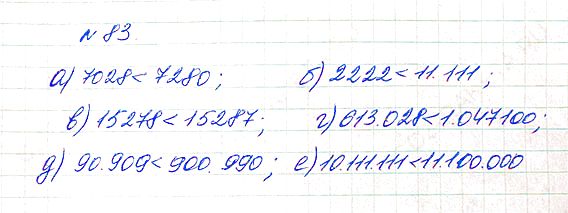 № 83.
а) 7028 < 7280; б) 2222 < 11.111;
в) 15278 < 15287; г) 613.028 < 1.047100;
д) 90.909 < 900.990; е) 10.111.111 < 11.100.000